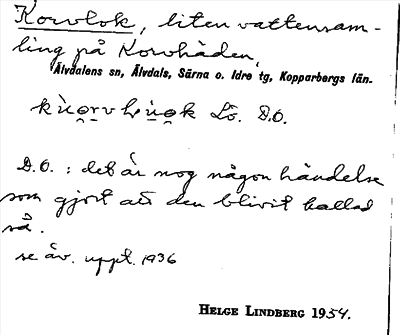 Korvhok, liten vattensam-
ling på Korvhåden,
Älvdalens sn, Älvdals, Särna o. Idre tg, Kopparbergs län.
Lö. D.O.
D.O. : det är nog någon händelse
som gjort att den blivit kallad
så.
se äv. uppt. 1936
HELGE LINDBERG 1954.